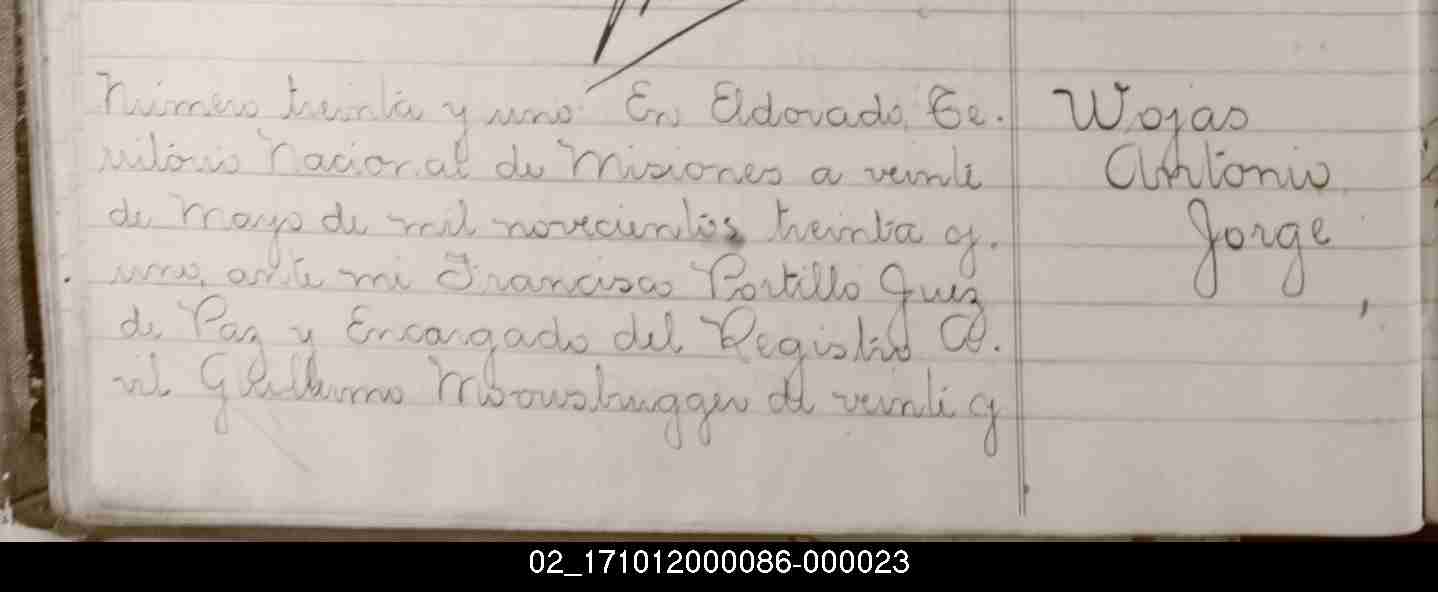 Número treinta y uno En Eldorado, Te.
rritorio Nacional de Misiones a veinte
de Mayo de mil novecientos treinta y.
uno, ante mi Francisco Portillo Juez
de Paz y Encargado del Registro Ci.
vil Guillermo de veinti y
Wojas
Antonio
Jorge
02_171012000086-000023